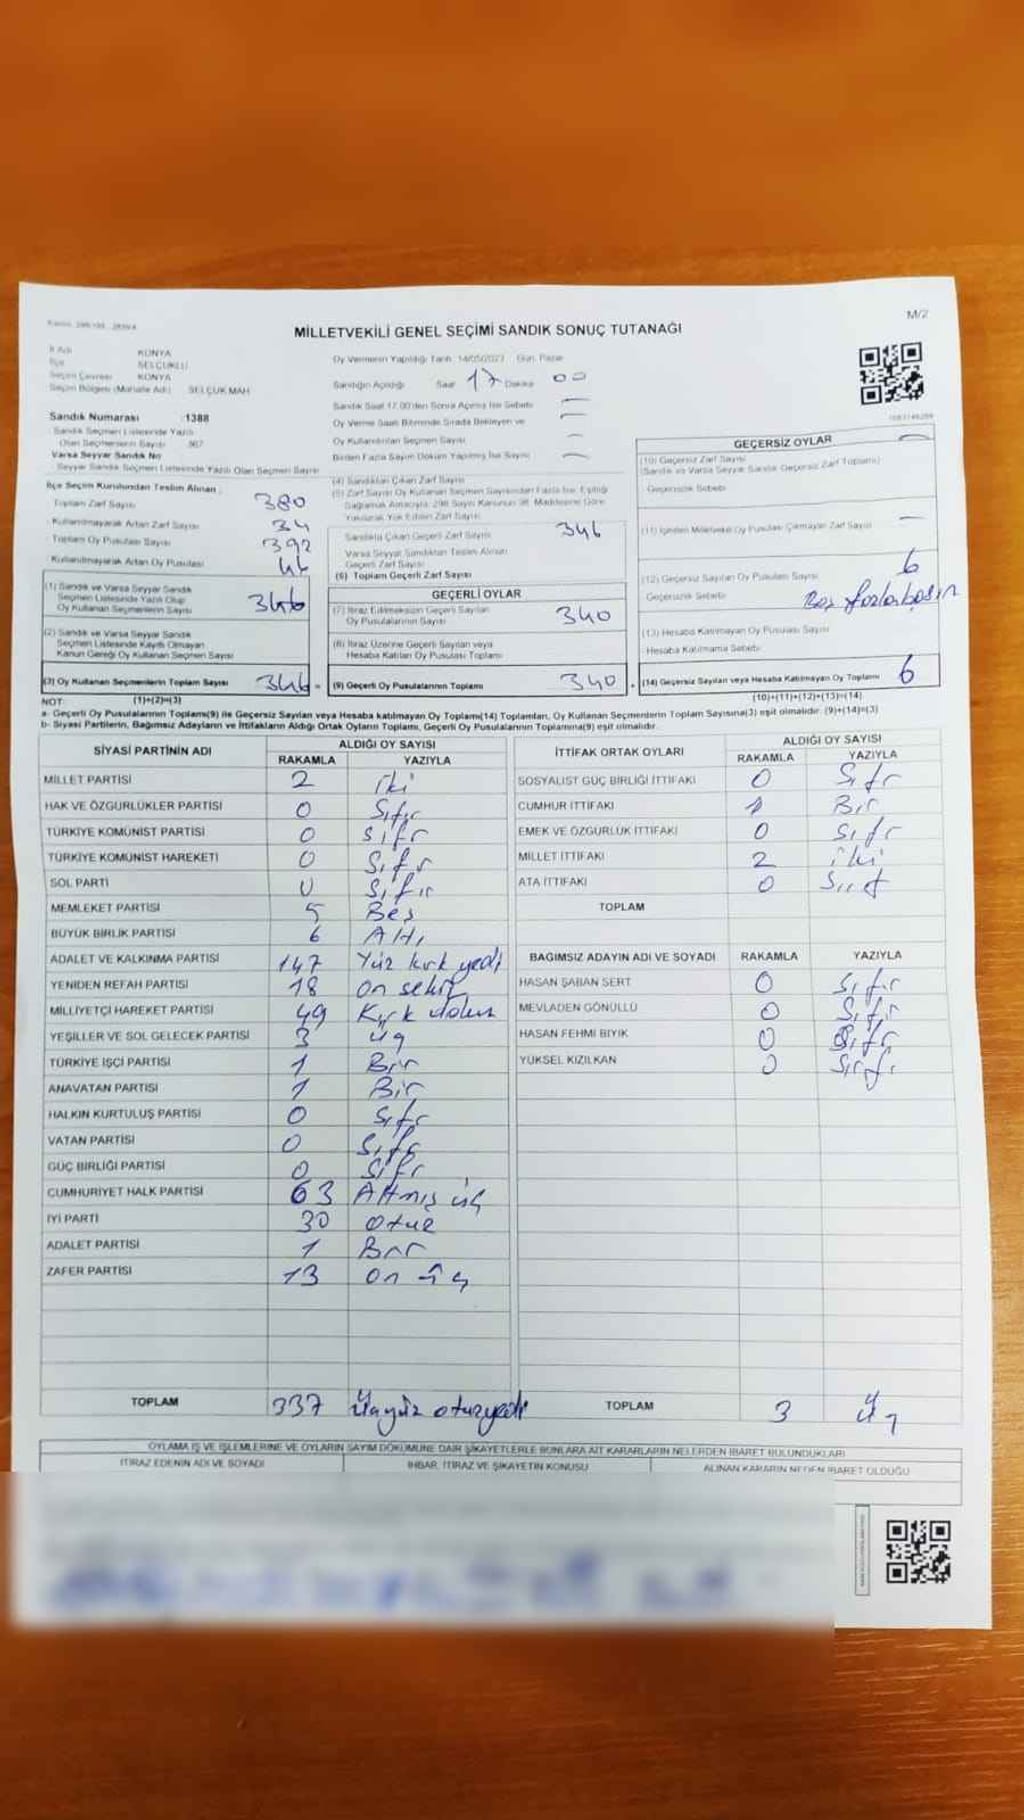 M/2
MİLLETVEKİLİ GENEL SEÇİMİ SANDIK SONUÇ TUTANAĞI
İl Adı KONYA
İlçe SELÇUKLU
Seçim Çevresi KONYA
Seçim Bölgesi (Mahalle Adı) SELÇUK MAH
Oy Vermenin Yapıldığı Tarih 14/05/2023 Gün Pazar
Sandığın Açıldığı Saat 17 Dakika 00
Sandık Saat 17.00'den Sonra Açılmış İse Sebebi —
Oy Verme Saati Bitiminde Sırada Bekleyen ve —
Oy Kullandırılan Seçmen Sayısı —
Birden Fazla Sayım Döküm Yapılmış İse Sayısı —
Sandık Numarası :1388
Sandık Seçmen Listesinde Yazılı
Olan Seçmenlerin Sayısı
Varsa Seyyar Sandık No
Seyyar Sandık Seçmen Listesinde Yazılı Olan Seçmen Sayısı
İlçe Seçim Kurulundan Teslim Alınan
Toplam Zarf Sayısı 380
Kullanılmayarak Artan Zarf Sayısı 34
Toplam Oy Pusulası Sayısı 392
Kullanılmayarak Artan Oy Pusulası
(1) Sandık ve Varsa Seyyar Sandık
Seçmen Listesinde Yazılı Olup
Oy Kullanan Seçmenlerin Sayısı 346
(2) Sandık ve Varsa Seyyar Sandık
Seçmen Listesinde Kayıtlı Olmayan
Kanun Gereği Oy Kullanan Seçmen Sayısı
(3) Oy Kullanan Seçmenlerin Toplam Sayısı 346 =
(1)+(2)=(3)
(4) Sandıktan Çıkan Zarf Sayısı
(5) Zarf Sayısı Oy Kullanan Seçmen Sayısından Fazla İse, Eşitliği
Sağlamak Amacıyla; 298 Sayılı Kanunun 98. Maddesine Göre
Yakılarak Yok Edilen Zarf Sayısı
Sandıkta Çıkan Geçerli Zarf Sayısı 346
Varsa Seyyar Sandıktan Teslim Alınan
Geçerli Zarf Sayısı
(6) Toplam Geçerli Zarf Sayısı
GEÇERLİ OYLAR
(7) İtiraz Edilmeksizin Geçerli Sayılan
Oy Pusulalarının Sayısı 340
(8) İtiraz Üzerine Geçerli Sayılan veya
Hesaba Katılan Oy Pusulası Toplamı
(9) Geçerli Oy Pusulalarının Toplamı 340 +
GEÇERSİZ OYLAR
(10) Geçersiz Zarf Sayısı —
(Sandık ve Varsa Seyyar Sandık Geçersiz Zarf Toplamı)
Geçersizlik Sebebi
(11) İçinden Milletvekili Oy Pusulası Çıkmayan Zarf Sayısı —
(12) Geçersiz Sayılan Oy Pusulası Sayısı 6
Geçersizlik Sebebi
(13) Hesaba Katılmayan Oy Pusulası Sayısı
Hesaba Katılmama Sebebi
(14) Geçersiz Sayılan veya Hesaba Katılmayan Oy Toplamı 6
(10)+(11)+(12)+(13)=(14)
NOT:
a- Geçerli Oy Pusulalarının Toplamı(9) ile Geçersiz Sayılan veya Hesaba katılmayan Oy Toplamı(14) Toplamları, Oy Kullanan Seçmenlerin Toplam Sayısına(3) eşit olmalıdır. (9)+(14)=(3)
b- Siyasi Partilerin, Bağımsız Adayların ve İttifakların Aldığı Ortak Oyların Toplamı, Geçerli Oy Pusulalarının Toplamına(9) eşit olmalıdır.
SİYASİ PARTİNİN ADI ALDIĞI OY SAYISI
RAKAMLA YAZIYLA
MİLLET PARTİSİ 2 iki
HAK VE ÖZGÜRLÜKLER PARTİSİ 0 Sıfır
TÜRKİYE KOMÜNİST PARTİSİ 0 sıfır
TÜRKİYE KOMÜNİST HAREKETİ 0 Sıfır
SOL PARTİ 0 Sıfır
MEMLEKET PARTİSİ 5 Beş
BÜYÜK BİRLİK PARTİSİ 6 Altı
ADALET VE KALKINMA PARTİSİ 147 Yüz kırk yedi
YENİDEN REFAH PARTİSİ 18 on sekiz
MİLLİYETÇİ HAREKET PARTİSİ 49 Kırk dokuz
YEŞİLLER VE SOL GELECEK PARTİSİ 3 üç
TÜRKİYE İŞÇİ PARTİSİ 1 Bir
ANAVATAN PARTİSİ 1 Bir
HALKIN KURTULUŞ PARTİSİ 0 Sıfır
VATAN PARTİSİ 0 Sıfır
GÜÇ BİRLİĞİ PARTİSİ 0 Sıfır
CUMHURİYET HALK PARTİSİ 63 Altmış üç
İYİ PARTİ 30 otuz
ADALET PARTİSİ 1 Bir
ZAFER PARTİSİ 13 on üç
TOPLAM 337 Üçyüz otuzyedi
İTTİFAK ORTAK OYLARI ALDIĞI OY SAYISI
RAKAMLA YAZIYLA
SOSYALİST GÜÇ BİRLİĞİ İTTİFAKI 0 Sıfır
CUMHUR İTTİFAKI 1 Bir
EMEK VE ÖZGÜRLÜK İTTİFAKI 0 Sıfır
MİLLET İTTİFAKI 2 iki
ATA İTTİFAKI 0
TOPLAM
BAĞIMSIZ ADAYIN ADI VE SOYADI RAKAMLA YAZIYLA
HASAN ŞABAN SERT 0 Sıfır
MEVLADEN GÖNÜLLÜ 0 Sıfır
HASAN FEHMİ BIYIK 0 Sıfır
YÜKSEL KIZILKAN 0 Sıfır
TOPLAM 3 Üç
OYLAMA İŞ VE İŞLEMLERİNE VE OYLARIN SAYIM DÖKÜMÜNE DAİR ŞİKAYETLERLE BUNLARA AİT KARARLARIN NELERDEN İBARET BULUNDUKLARI
İTİRAZ EDENİN ADI VE SOYADI İHBAR, İTİRAZ VE ŞİKAYETİN KONUSU ALINAN KARARIN NEDEN İBARET OLDUĞU